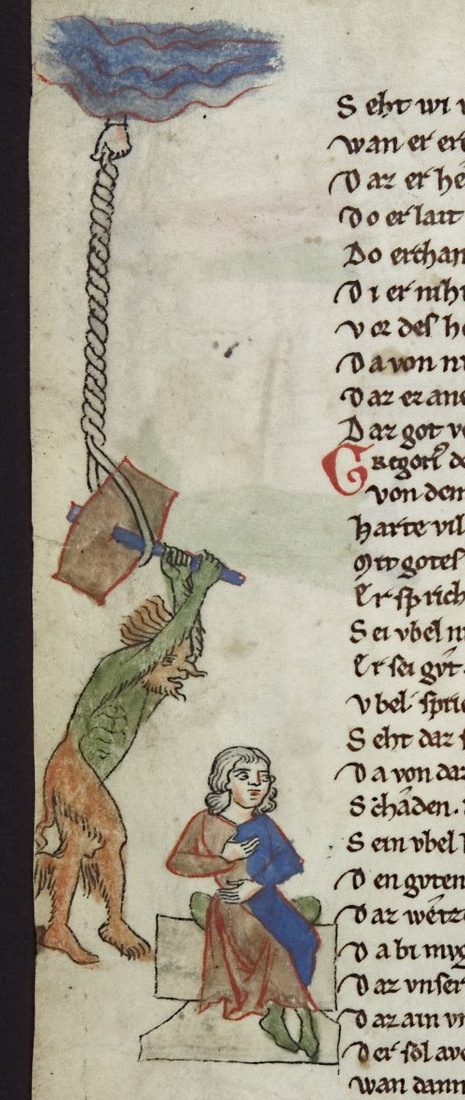 Seht wi v
wan er ere
Daz er he
Do er lait
Do erchan
Di er niht
vor des h
Da von ni
Daz er ane
Daz got v
Gregori de
von dem
harte vil
Mit gotes
Er sprich
Sei vbel n
Er sei gvt
vbel spri
Seht daz s
Da von daz
Schaden.
Sein vbel
Den gvten
Daz wetz
Da bi mvg
Daz vnser
Daz ain vn
Der sol ave
wan dann